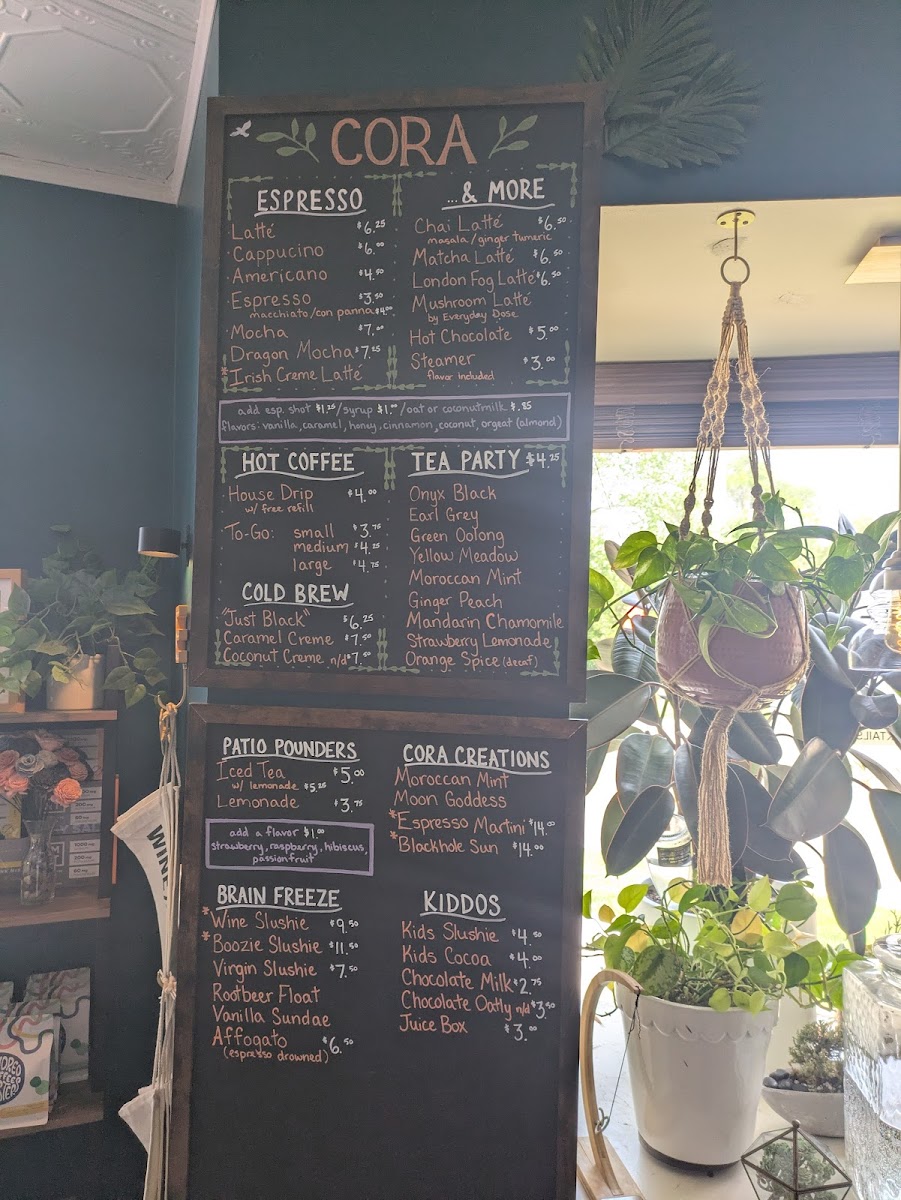 CORA
ESPRESSO
Latté $6.25
Cappucino $6.00
Americano $4.50
Espresso $3.50
macchiato/con panna $4.00
Mocha $7.00
Dragon Mocha $7.25
*Irish Creme Latté
...& MORE
Chai Latté $6.50
masala/ginger tumeric
Matcha Latté $6.50
London Fog Latté $6.50
Mushroom Latté
by Everyday Dose
Hot Chocolate $5.00
Steamer $3.00
flavor included
add esp. shot $1.25/syrup $1.00/oat or coconutmilk $.85
flavors: vanilla, caramel, honey, cinnamon, coconut, orgeat (almond)
HOT COFFEE
House Drip $4.00
w/ free refill
To-Go: small $3.75
medium $4.25
large $4.75
COLD BREW
"Just Black" $6.25
Caramel Creme $7.50
Coconut Creme n/d $7.50
TEA PARTY $4.25
Onyx Black
Earl Grey
Green Oolong
Yellow Meadow
Moroccan Mint
Ginger Peach
Mandarin Chamomile
Strawberry Lemonade
Orange Spice (decaf)
PATIO POUNDERS
Iced Tea $5.00
w/ lemonade $5.25
Lemonade $3.75
add a flavor $1.00
strawberry, raspberry, hibiscus,
passionfruit
BRAIN FREEZE
*Wine Slushie $9.50
*Boozie Slushie $11.50
Virgin Slushie $7.50
Rootbeer Float
Vanilla Sundae
Affogato $6.50
(espresso drowned)
CORA CREATIONS
Moroccan Mint
Moon Goddess
*Espresso Martini $14.00
*Blackhole Sun $14.00
KIDDOS
Kids Slushie $4.50
Kids Cocoa $4.00
Chocolate Milk $2.75
Chocolate Oatly n/d $3.50
Juice Box $3.00
WINE